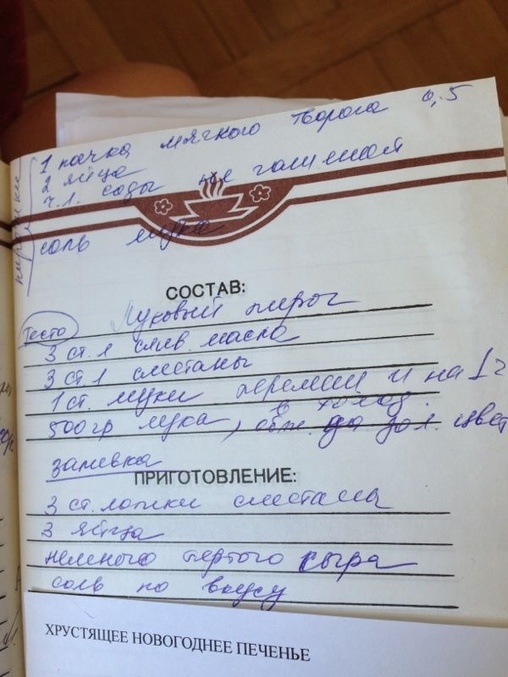 1 пачка мягкого творога 0,5
2 яйца
ч.л. соды не гашеной
соль мука
СОСТАВ:
Луковый пирог
Тесто
3 ст.л слив масла
3 ст.л сметаны
1 ст. муки и на 1 г
в холод.
500 гр лука, до зол. цвет
заливка
ПРИГОТОВЛЕНИЕ:
3 ст. ложки сметаны
3 яйца
немного тертого сыра
соль по вкусу
ХРУСТЯЩЕЕ НОВОГОДНЕЕ ПЕЧЕНЬЕ